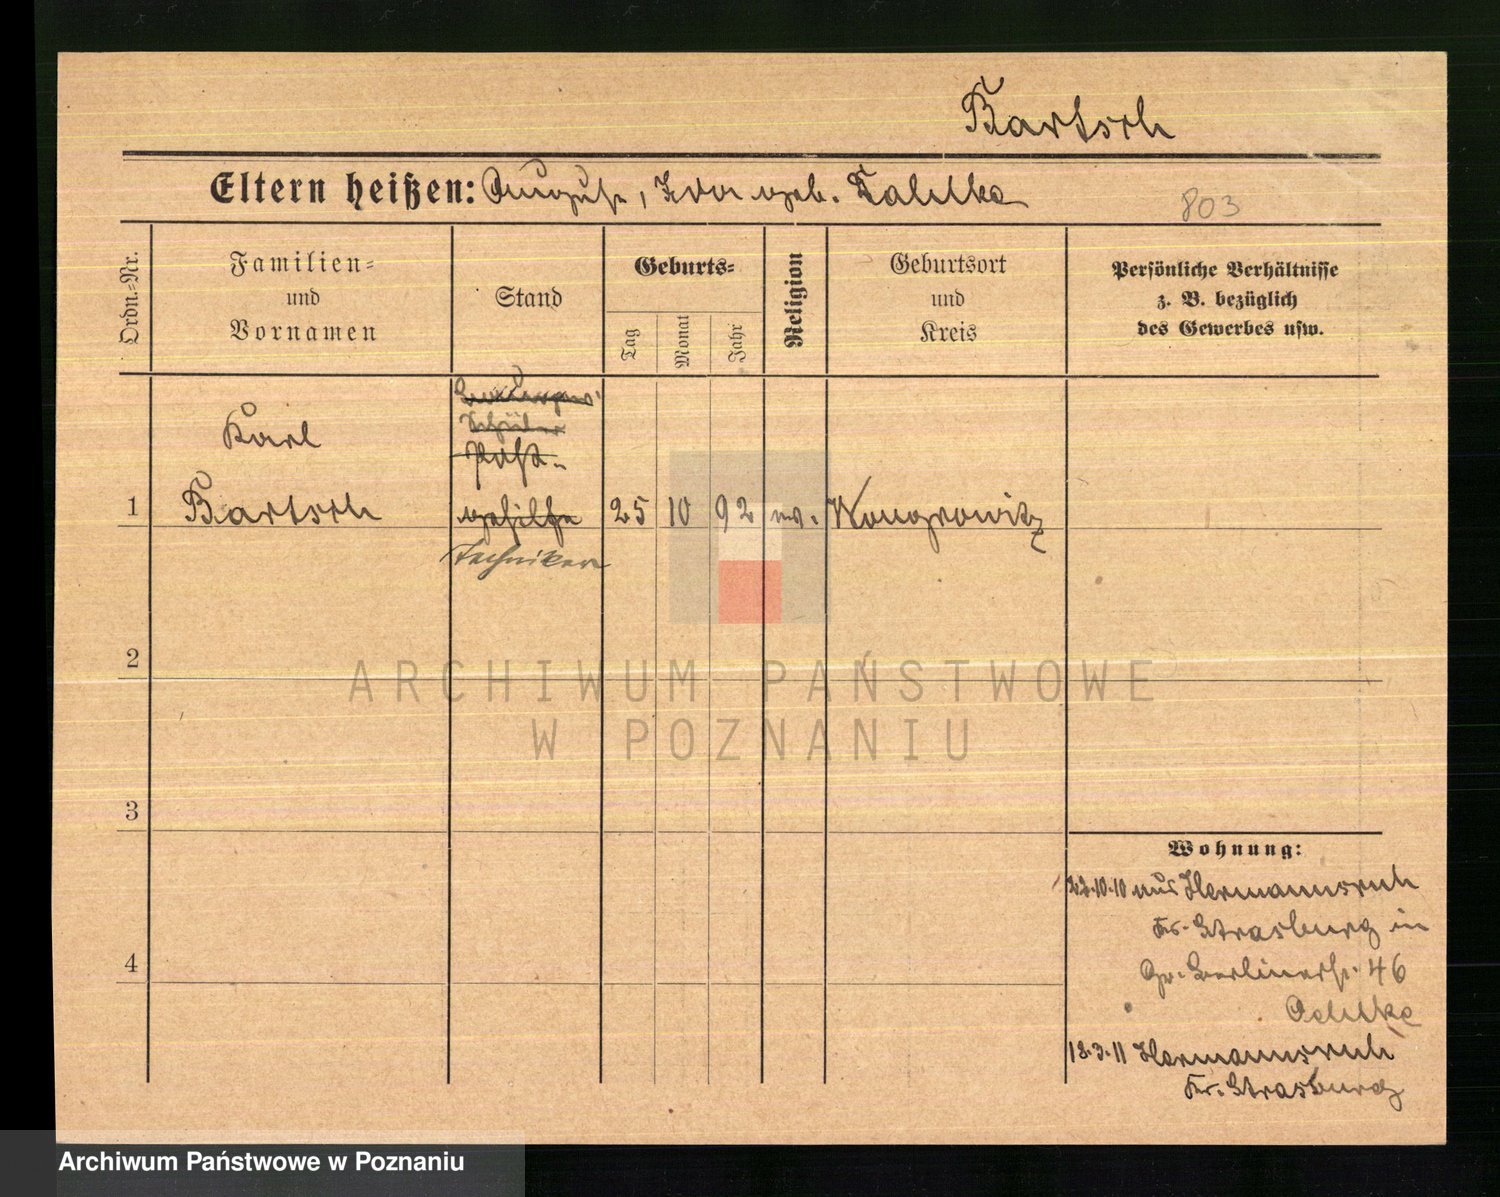 Bartsch
Eltern heißen: August, Ida geb. Tahlke
803
Ordn.-Nr.
Familien-
und
Vornamen
Stand
Geburts-
Tag
Monat
Jahr
Religion
Geburtsort
und
Kreis
Persönliche Verhältnisse
z. B. bezüglich
des Gewerbes usw.
Karl
Schüler
Post-
1 Bartsch gehilfe 25 10 92 ev. Wongrowitz
Techniker
2
3
4
Wohnung:
22.10.10 aus Hermannsruh
Kr. Strasburg in
Gr. Berlinerstr. 46
18.3.11 Hermannsruh
Kr. Strasburg
ARCHIWUM PAŃSTWOWE
W POZNANIU
Archiwum Państwowe w Poznaniu